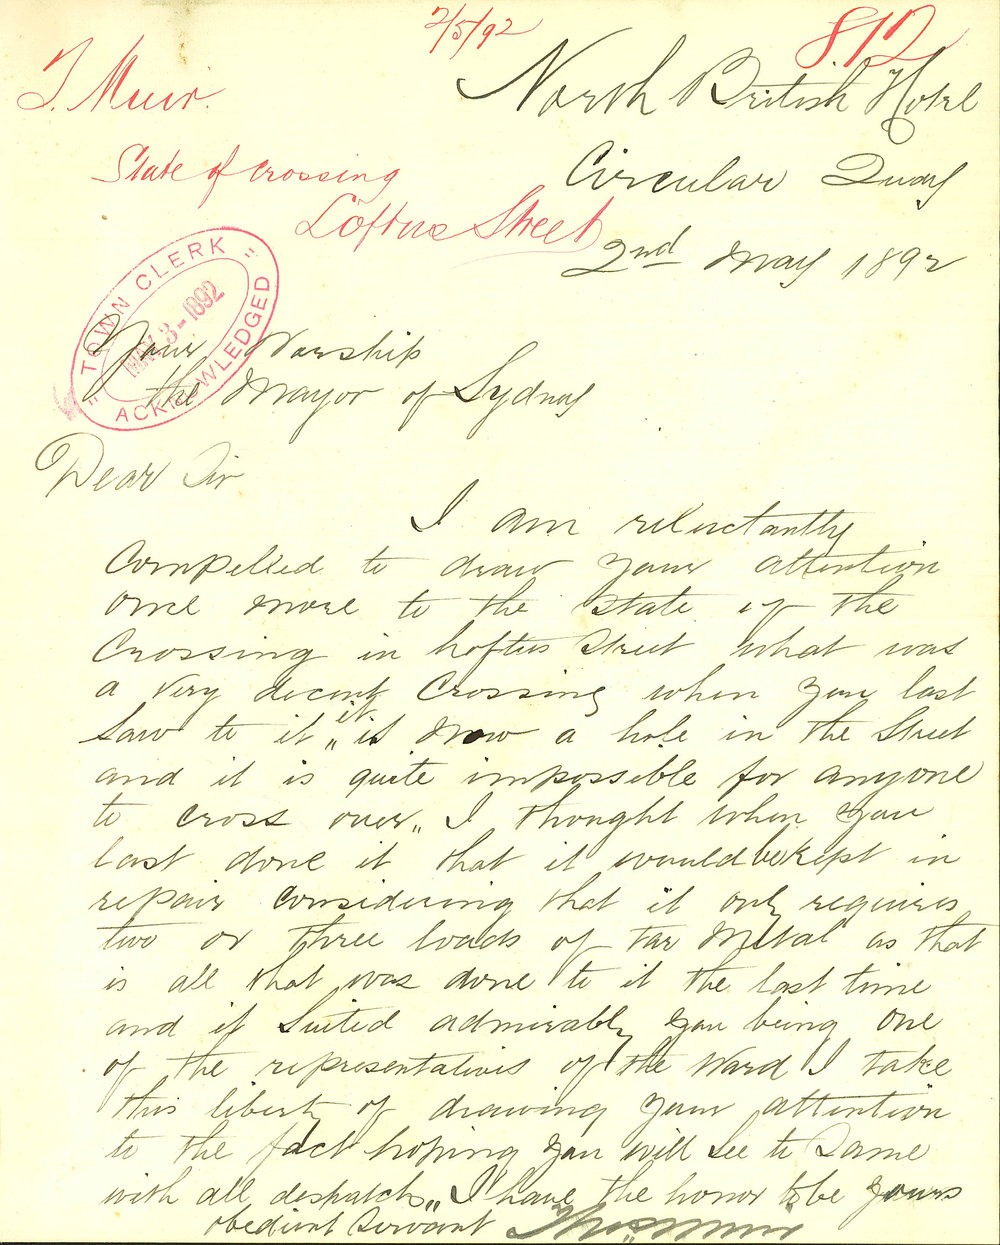 2/5/92
812
T. Muir.
North British Hotel
State of Crossing
Circular Quay
Loftus Street
2nd May 1892
TOWN CLERK
MAY 3-1892
ACKNOWLEDGED
Your Worship
the Mayor of Sydney
Dear Sir
I am reluctantly
Compelled to draw your attention
once more to the state of the
Crossing in Loftus Street what was
a very decent Crossing when you last
saw to it „ it is now a hole in the Street
and it is quite impossible for anyone
to cross over „ I thought when you
last done it that it would be kept in
repair considering that it only requires
two or three loads of tar Metal as that
is all that was done to it the last time
and it Suited admirably you being one
of the representatives of the Ward I take
this liberty of drawing your attention
to the fact hoping you will see to Same
with all despatch „ I have the honor to be yours
obedient Servant Thos Muir